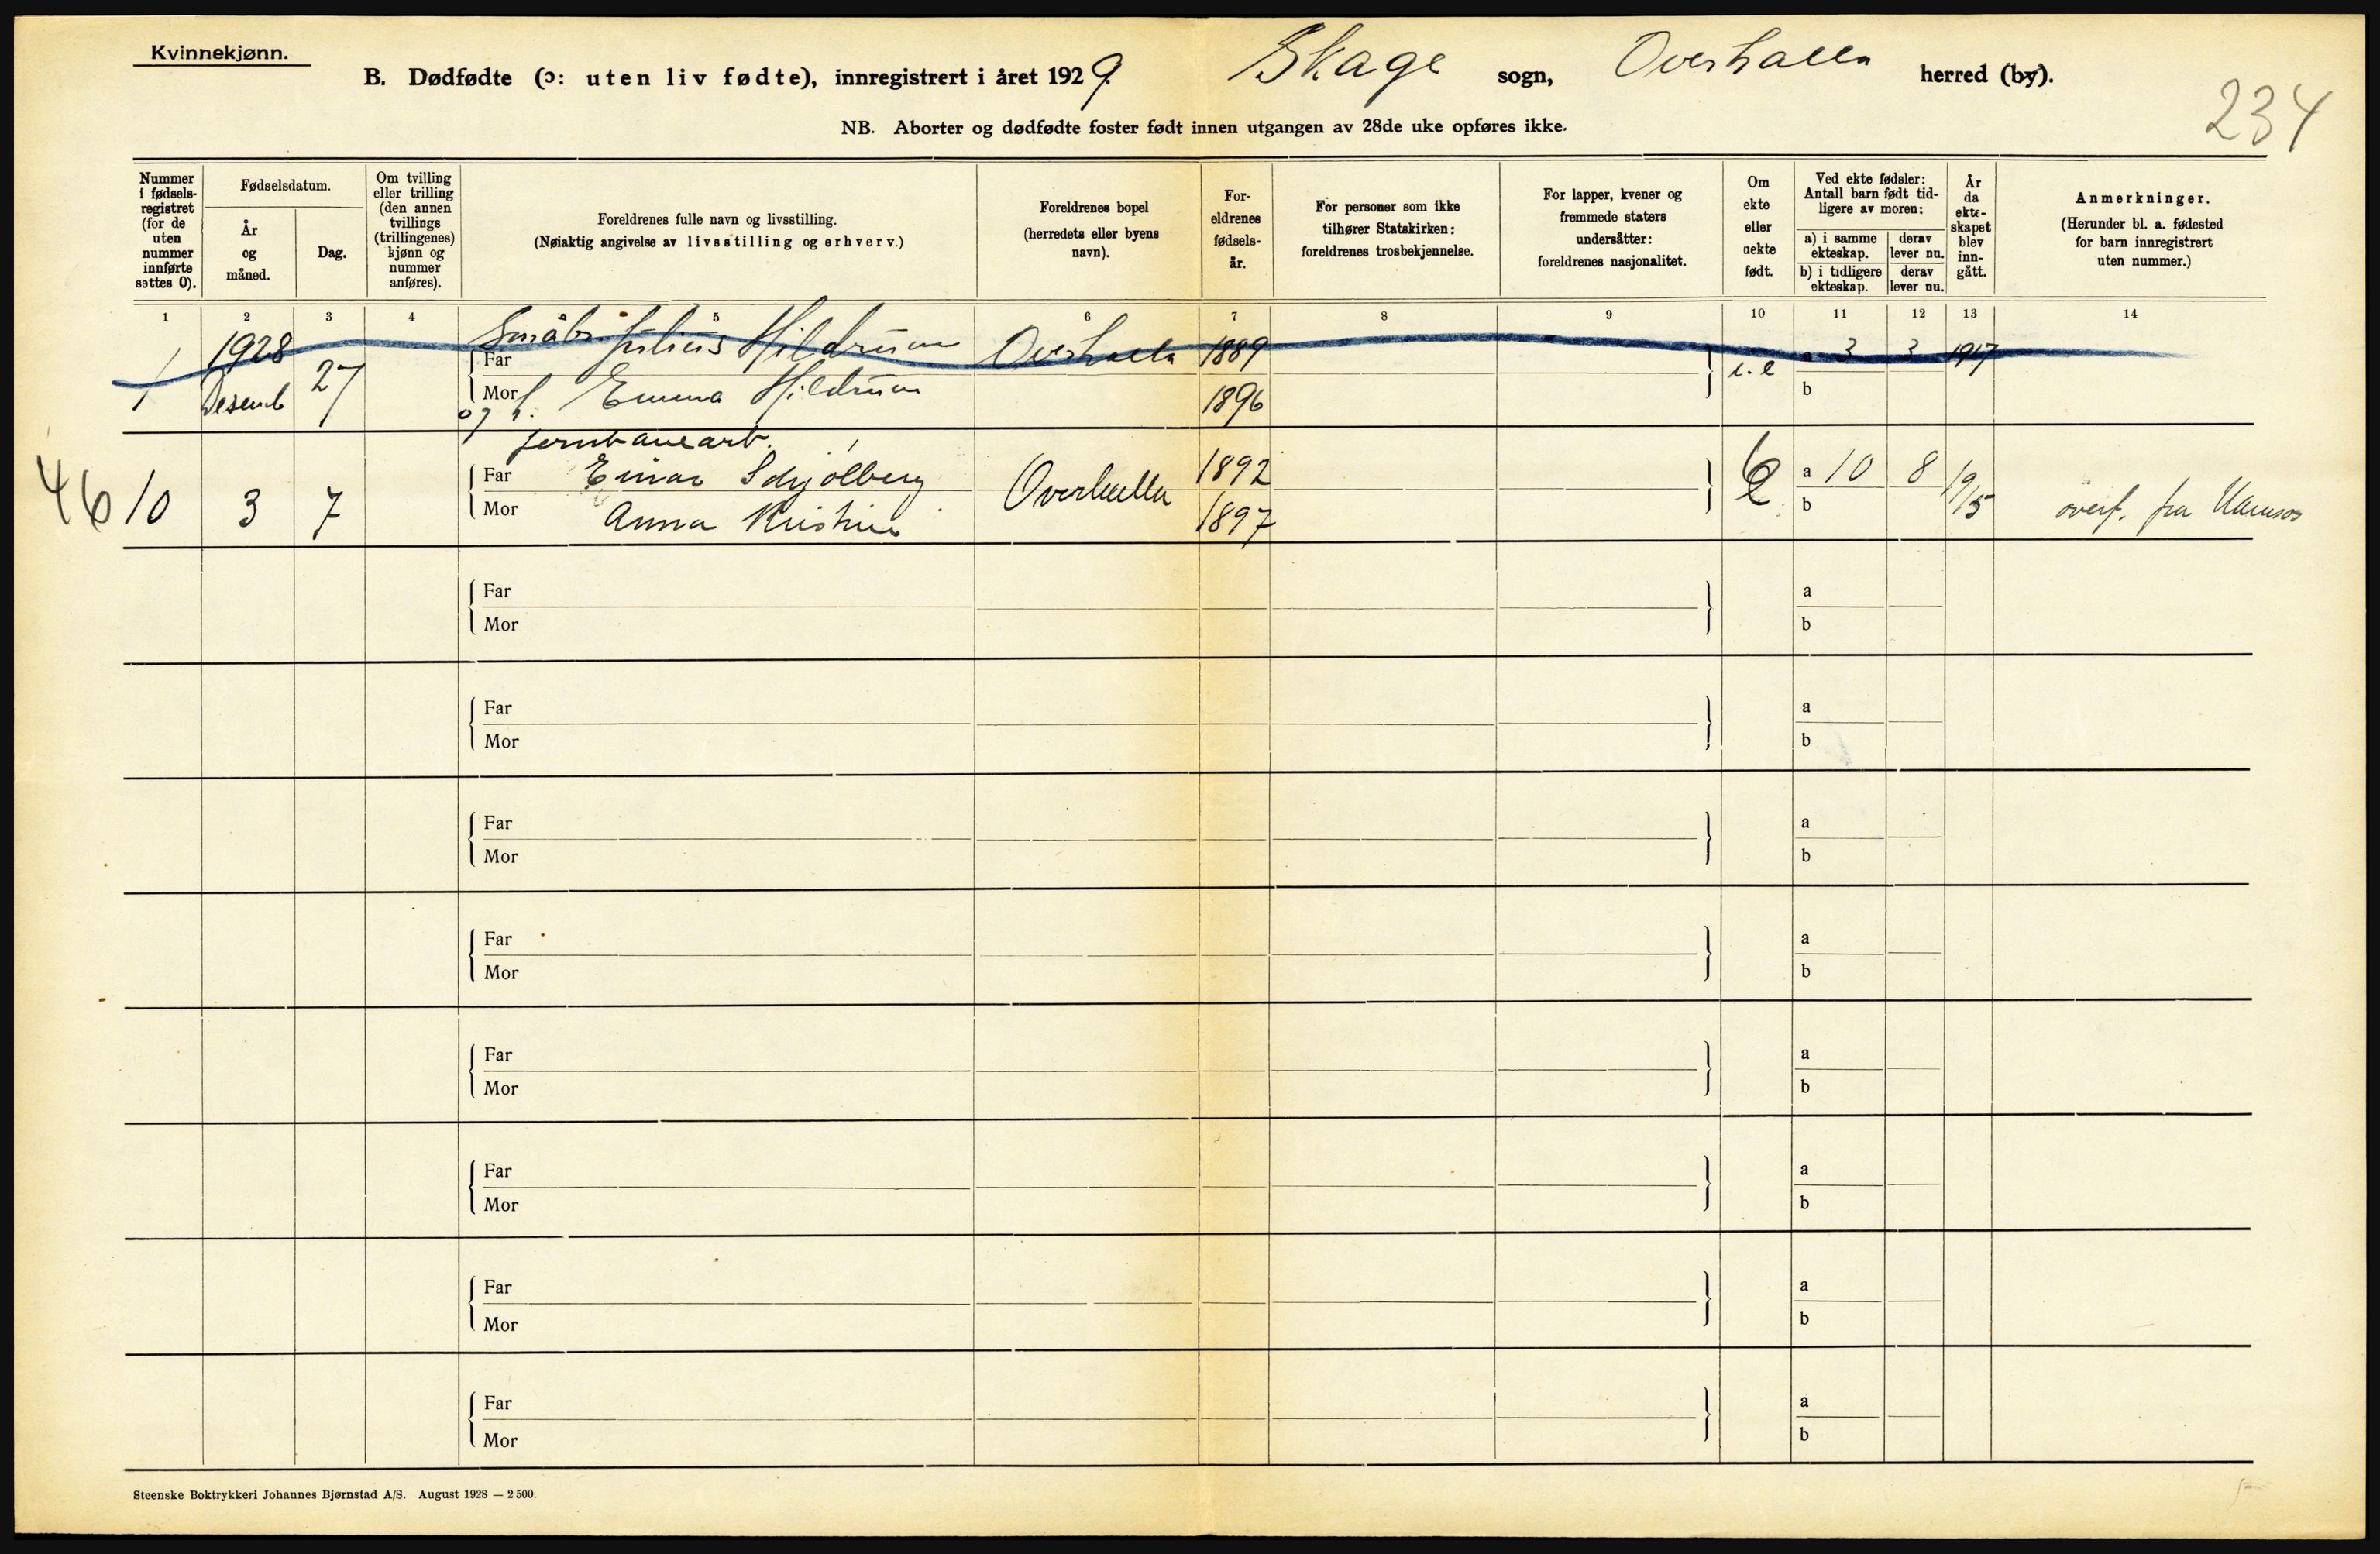 Kvinnekjønn.
B. Dødfødte (ɔ: uten liv fødte), innregistrert i året 1929 Skage sogn, Overhalla herred (by).
234
NB. Aborter og dødfødte foster født innen utgangen av 28de uke opføres ikke.
Nummer i fødsels-registret (for de uten nummer innførte settes 0).
Fødselsdatum.
År og måned.
Dag.
Om tvilling eller trilling (den annen tvillings (trillingenes) kjønn og nummer anføres).
Foreldrenes fulle navn og livsstilling.
(Nøiaktig angivelse av livsstilling og erhverv.)
Foreldrenes bopel (herredets eller byens navn).
For-eldrenes fødsels-år.
For personer som ikke tilhører Statskirken: foreldrenes trosbekjennelse.
For lapper, kvener og fremmede staters undersåtter: foreldrenes nasjonalitet.
Om ekte eller uekte født.
Ved ekte fødsler: Antall barn født tid-ligere av moren:
a) i samme ekteskap.
derav lever nu.
b) i tidligere ekteskap.
derav lever nu.
År da ekte-skapet blev inn-gått.
Anmerkninger.
(Herunder bl. a. fødested for barn innregistrert uten nummer.)
1 2 3 4 5 6 7 8 9 10 11 12 13 14
Småbr. Julius Hildrum
1 1928 Desemb 27 Far Overhalla 1889 a 3 3 1917
Mor og h. Emma Hildrum 1896 b
Jernbanearb.
46 10 3 7 Far Einar Schjølberg Overhalla 1892 e a 10 8 19/15 overf. fra Namsos
Mor Anna Kristine 1897 b
Far a
Mor b
Far a
Mor b
Far a
Mor b
Far a
Mor b
Far a
Mor b
Far a
Mor b
Far a
Mor b
Far a
Mor b
Steenske Boktrykkeri Johannes Bjørnstad A/S. August 1928 — 2 500.